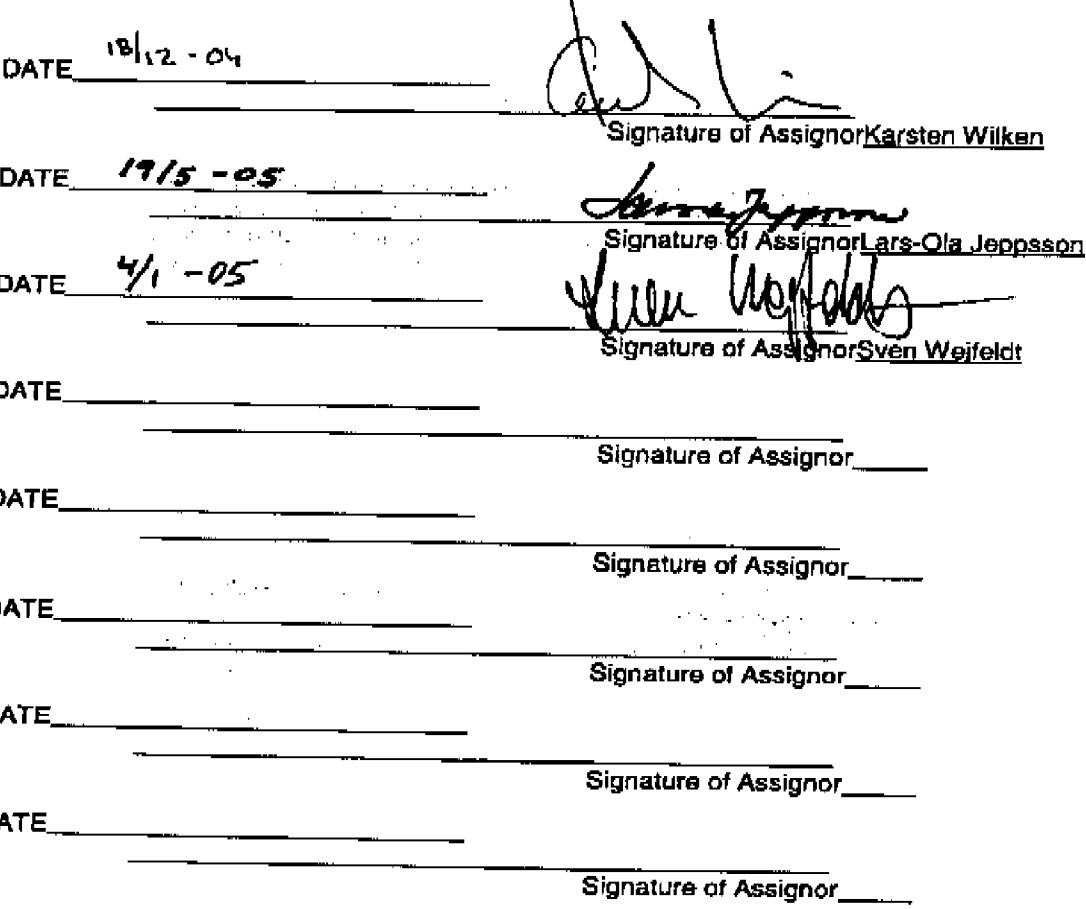 DATE 18/12 - 04
Signature of Assignor Karsten Wilken
DATE 19/5 - 05
Signature of Assignor Lars-Ola Jeppsson
DATE 4/1 - 05
Sven Wejfeldt
Signature of Assignor Sven Wejfeldt
DATE
Signature of Assignor
DATE
Signature of Assignor
DATE
Signature of Assignor
DATE
Signature of Assignor
DATE
Signature of Assignor